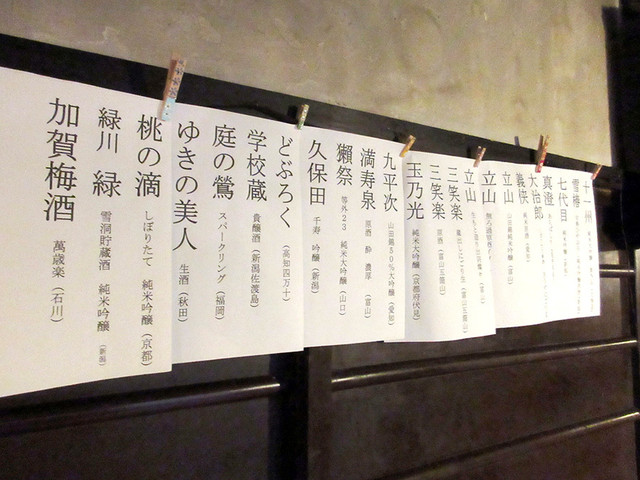 十一州
雪椿
七代目
真澄
大治郎
義侠
立山
山田錦純米吟醸（富山）
立山
立山
三笑楽
三笑楽
原酒（富山五箇山）
玉乃光
純米大吟醸（京都府伏見）
九平次
山田錦50％大吟醸（愛知）
満寿泉
原酒 酔 濃厚（富山）
獺祭
等外23 純米大吟醸（山口）
久保田
千寿 吟醸（新潟）
どぶろく
（高知四万十）
学校蔵
貴醸酒（新潟佐渡島）
庭の鶯
スパークリング（福岡）
ゆきの美人
生酒（秋田）
桃の滴
しぼりたて 純米吟醸（京都）
緑川 緑
雪洞貯蔵酒 純米吟醸（新潟）
加賀梅酒
萬歳楽（石川）